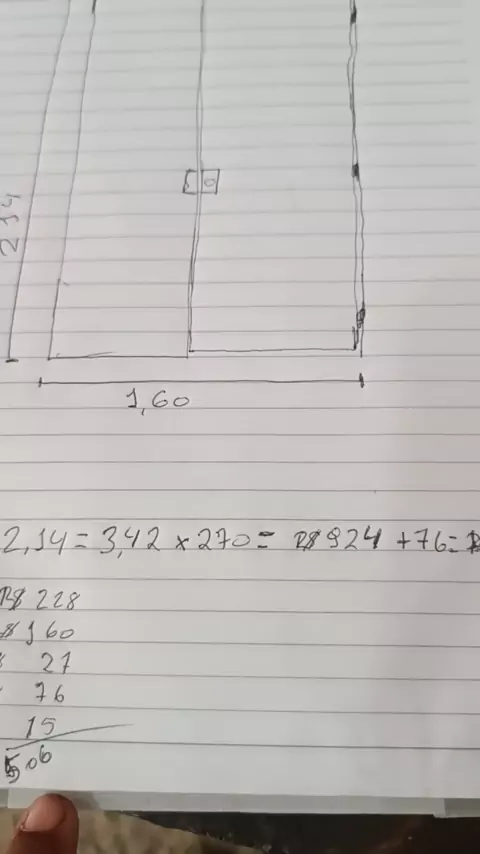 2,14
1,60
2,14 = 3,42 × 270 = R$ 924 + 76 =
R$ 228
$ 160
27
76
15
506